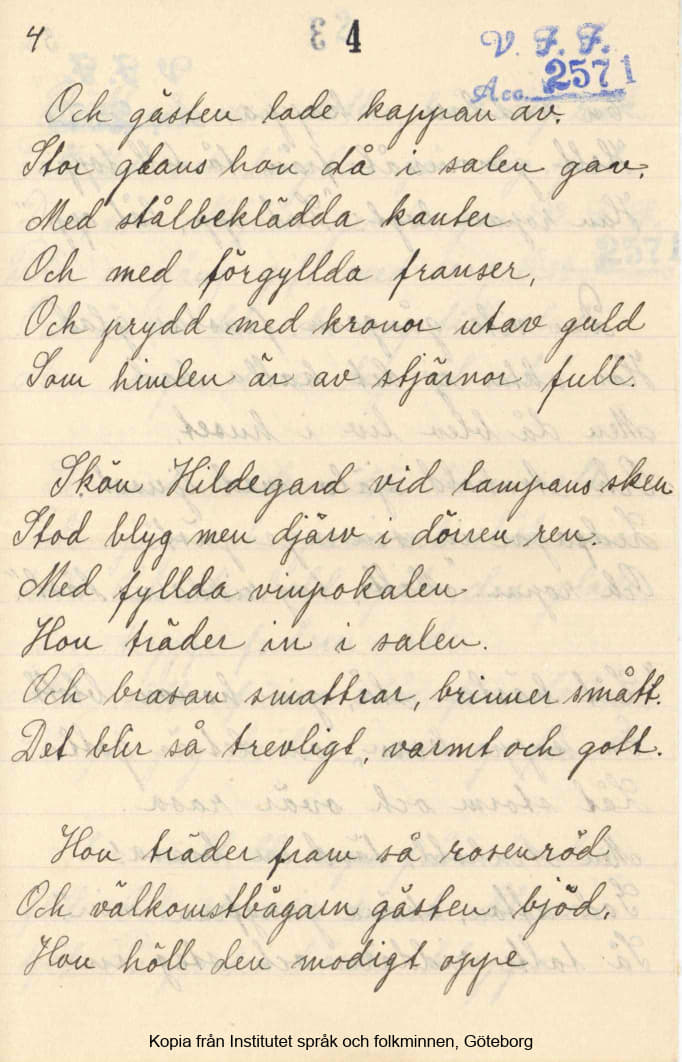 4
4
V. F. F.
Acc. 2571
Och gästen lade kappan av.
Stor glans hon då i salen gav.
Med stålbeklädda kanter
Och med förgyllda franser,
Och prydd med kronor utav guld
Som himlen är av stjärnor full.
Skön Hildegard vid lampans sken
Stod blyg men djärv i dörren ren.
Med fyllda vinpokalen
Hon träder in i salen.
Och brasan smattrar, brinner smått.
Det blir så trevligt, varmt och gott.
Hon träder fram så rosenröd
Och välkomstbägarn gästen bjöd,
Hon höll den modigt oppe
Kopia från Institutet språk och folkminnen, Göteborg